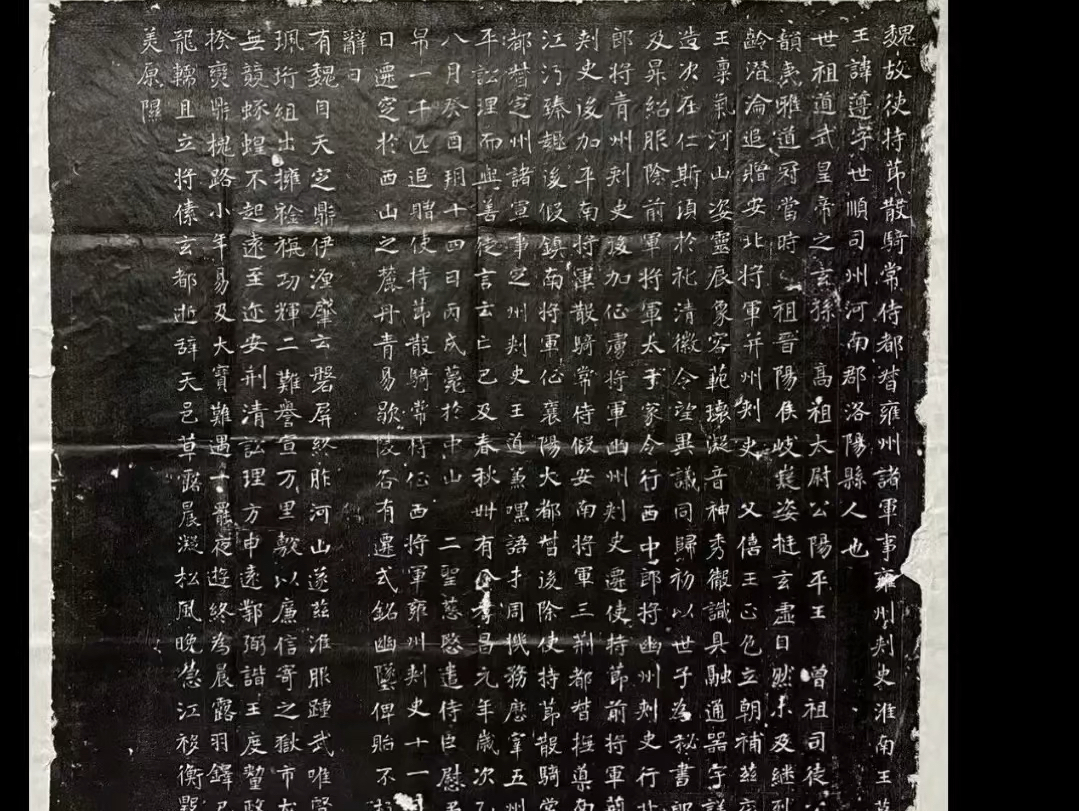 魏故使持節散騎常侍都督雍州諸軍事雍州刺史淮南王墓
王諱遵字世順司州河南郡洛陽縣人也
世祖道武皇帝之玄孫 高祖太尉公陽平王 曾祖司徒
韻素雅道冠當時 祖晉陽侯岐嶷姿挺玄虛日然未及繼列
齡潛淪追贈安北將軍并州刺史 父僖王正色立朝補茲
王稟氣河山姿靈辰象容範瓌凝音神秀徹識具融通器宇
造次在仁斯須於礼清徽令望異議同歸初以世子為秘書郎
及昇紹服除前軍將軍太子家令行西中郎將幽州刺史行北
郎將青州刺史後加征虜將軍幽州刺史遷使持節前將軍
刺史後加平南將軍散騎常侍假安南將軍三荊都督撫導南
江沔臻趨後假鎮南將軍征襄陽大都督後除使持節散騎常
都督定州諸軍事定州刺史王道兼嘿語才周機務歷宰五州
平訟理而與善徒言云亡已及春秋卌有八孝昌元年歲次乙
八月癸酉朔十四日丙戌薨於中山 二聖慈愍遣侍臣慰
帛一千匹追贈使持節散騎常侍征西將軍雍州刺史十一
日遷定於西山之麓丹青易歇陵谷有遷式銘幽墜俾貽不朽
辭曰
有魏自天定鼎伊湹肇玄磐屏終胙河山遂茲淮服踵武唯賢
珮珩組出擁旍旟功輝二難譽宣万里敷以廉信寄之獄市
無競蝝蝗不起遠至迩安刑清訟理方申遠鄣弼諧王度
揆奭鼎槐路小年易及大寶難遇一罷夜遊終為晨露羽鐸
龍轜且立將傃玄都逝辞天邑草露晨凝松風晚急江移衡
美原隰